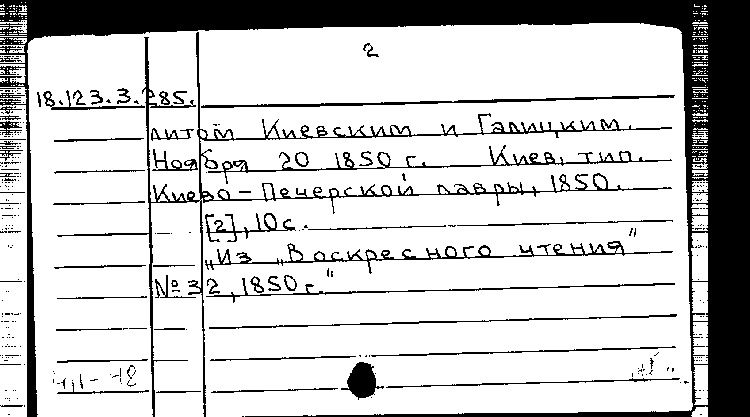 2
18.123.3.285.
литом Киевским и Галицким.
Ноября 20 1850 г. Киев, тип.
Киево-Печерской лавры, 1850.
[2], 10 с.
„Из „Воскресного чтения"
№ 32, 1850 г."